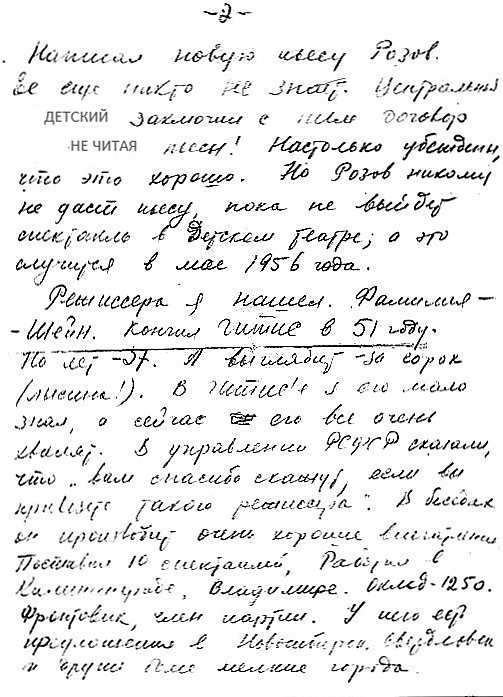 -2-
Написал новую пьесу Розов.
Ее еще никто не знает. Центральный
ДЕТСКИЙ заключил с ним договор
НЕ ЧИТАЯ пьесы! Настолько убеждены,
что это хорошо. Но Розов никому
не даст пьесу, пока не выйдет
спектакль в Детском театре; а это
случится в мае 1956 года.
Режиссера я нашел. Фамилия -
- Шейн. Кончил ГИТИС в 51 году.
Но лет - 37. А выглядит - за сорок
(лысина!). В ГИТИС'е я его мало
знал, а сейчас его все очень
хвалят. В управлении РСФСР сказали,
что "вам спасибо скажут, если вы
привезете такого режиссера". В беседах
он производит очень хорошее впечатление.
Поставил 10 спектаклей, Работал в
Калининграде, Владимире. Оклад - 1250.
Фронтовик, член партии. У него есть
предложения в Новосибирск, Свердловск
и другие более мелкие города.